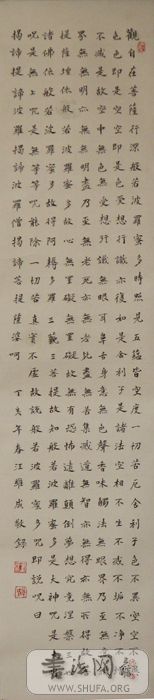 觀自在菩薩行深般若波羅蜜多時照見五蘊皆空度一切苦厄舍利子色不異空空不異
色色即是空空即是色受想行識亦復如是舍利子是諸法空相不生不滅不垢不淨不增
不減是故空中無色無受想行識無眼耳鼻舌身意無色聲香味觸法無眼界乃至無意識
界無無明亦無無明盡乃至無老死亦無老死盡無苦集滅道無智亦無得以無所得故菩
提薩埵依般若波羅蜜多故心無罣礙無罣礙故無有恐怖遠離顛倒夢想究竟涅槃三世
諸佛依般若波羅蜜多故得阿耨多羅三藐三菩提故知般若波羅蜜多是大神咒是大明
咒是無上咒是無等等咒能除一切苦真實不虛故說般若波羅蜜多咒即說咒曰
揭諦揭諦波羅揭諦波羅僧揭諦菩提薩婆呵
丁亥年春江雄成敬錄
書法网
WWW.SHUFA.ORG